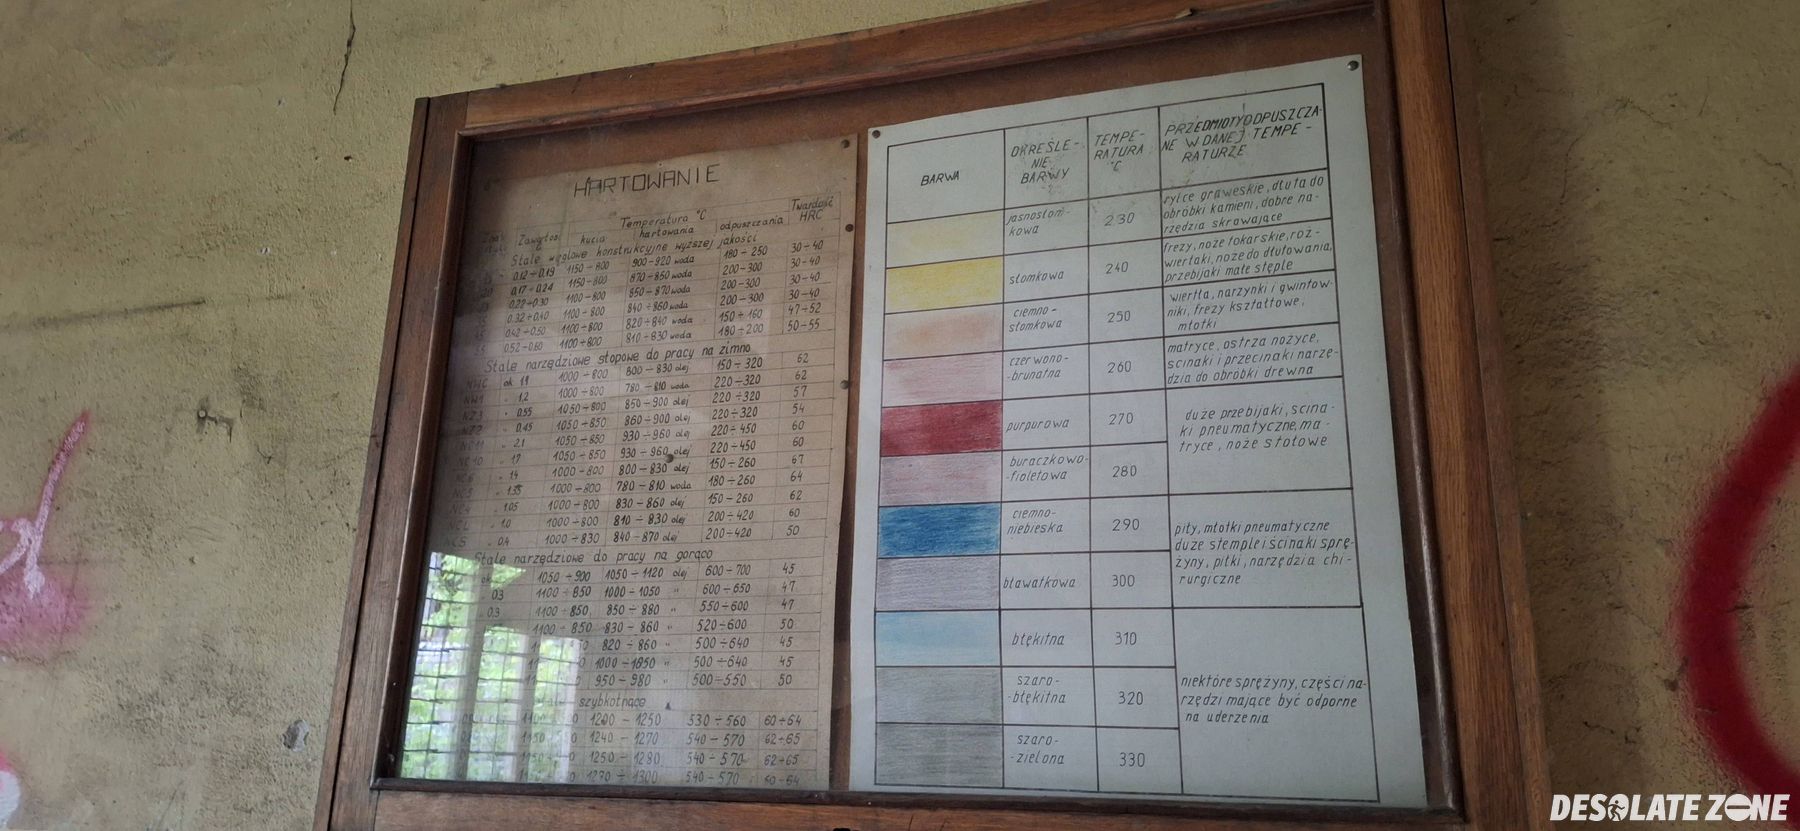 HARTOWANIE
Temperatura °C
Twardość
HRC
Zawartoś
kucia
hartowania
odpuszczania
Stale węglowe konstrukcyjne wyższej jakości
0.12÷0.19 1150-800 900-920 woda 180÷250 30-40
0.17÷0.24 1150-800 870-850 woda 200-300 30-40
0.22÷0.30 1100-800 850-870 woda 200-300 30-40
0.32÷0.40 1100-800 840÷860 woda 200÷300 30-40
0.42÷0.50 1100÷800 820÷840 woda 150÷160 47÷52
0.52÷0.60 1100÷800 810÷830 woda 180÷200 50-55
Stale narzędziowe stopowe do pracy na zimno
ok 1.1 1000-800 800-830 olej 150-320 62
NW1 " 1,2 1000-800 780-810 woda 220÷320 62
NZ3 " 0.55 1050-800 850÷900 olej 220÷320 57
NZ2 " 0.45 1050÷850 860÷900 olej 220÷320 54
NC11 " 2.1 1050÷850 930-960 olej 220÷450 60
1050÷850 930÷960 olej 220÷450 60
1000-800 800÷830 olej 150÷260 67
1000-800 780-810 woda 180÷260 64
" 1.05 1000-800 830-860 olej 150-260 62
" 1.0 1000÷800 810÷830 olej 200÷420 60
" 0.4 1000÷830 840-870 olej 200÷420 50
Stale narzędziowe do pracy na gorąco
1050÷900 1050÷1120 olej 600÷700 45
0.3 1100÷850 1000÷1050 " 600÷650 47
0.3 1100÷850 850÷880 " 550÷600 47
1100÷850 830-860 " 520÷600 50
820÷860 " 500÷640 45
1000-1050 " 500÷640 45
950-980 " 500÷550 50
szybkotnące
1200-1250 530÷560 60÷64
1240-1270 540÷570 62÷65
1250-1280 540÷570 62÷65
1270÷1300 540-570 60-64
BARWA
OKREŚLE-
NIE
BARWY
TEMPE-
RATURA
°C
PRZEDMIOTY ODPUSZCZA-
NE W DANEJ TEMPE-
RATURZE
jasnosłom-
kowa
230
rylce graweskie, dłuta do
obróbki kamieni, dobre na-
rzędzia skrawające
słomkowa
240
frezy, noże tokarskie, roz-
wiertaki, noże do dłutowania,
przebijaki małe stęple
ciemno-
słomkowa
250
wiertła, narzynki i gwintow-
niki, frezy kształtowe,
młotki
czerwono-
-brunatna
260
matryce, ostrza nożyce,
ścinaki i przecinaki narzę-
dzia do obróbki drewna
purpurowa
270
duże przebijaki, ścina-
ki pneumatyczne, ma-
tryce, noże stołowe
buraczkowo-
-fioletowa
280
ciemno-
niebieska
290
piły, młotki pneumatyczne
duże stemple i ścinaki sprę-
żyny, piłki, narzędzia chi-
rurgiczne
bławatkowa
300
błękitna
310
szaro-
-błękitna
320
niektóre sprężyny, części na-
rzędzi mające być odporne
na uderzenia
szaro-
-zielona
330
DESOLATE ZONE